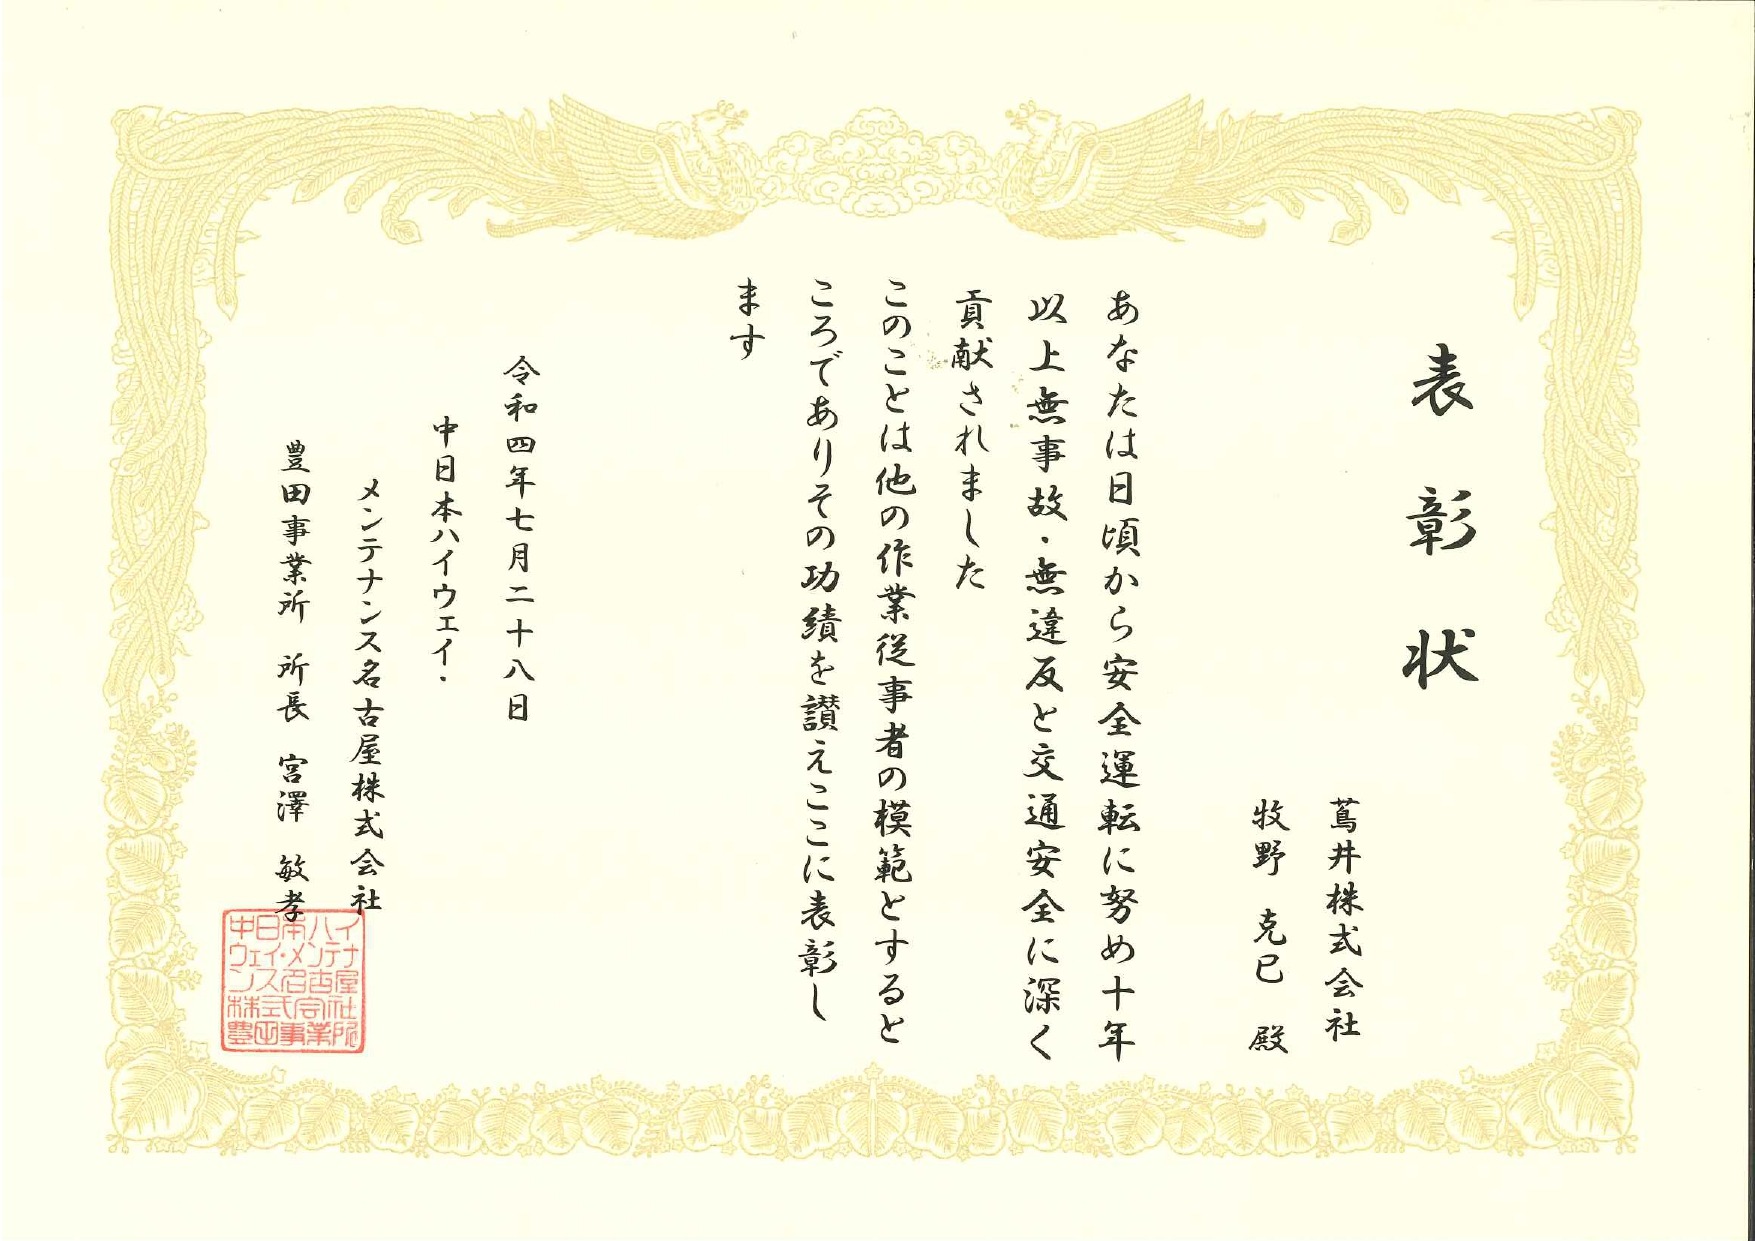 表彰状
蔦井株式会社
牧野 克巳 殿
あなたは日頃から安全運転に努め十年
以上無事故・無違反と交通安全に深く
貢献されました
このことは他の作業従事者の模範とすると
ころでありその功績を讃えここに表彰し
ます
令和四年七月二十八日
中日本ハイウェイ・
メンテナンス名古屋株式会社
豊田事業所 所長 宮澤 敏孝
中日本ハイ
ウェイ・メンテナ
ンス名古屋
株式会社
豊田事業所